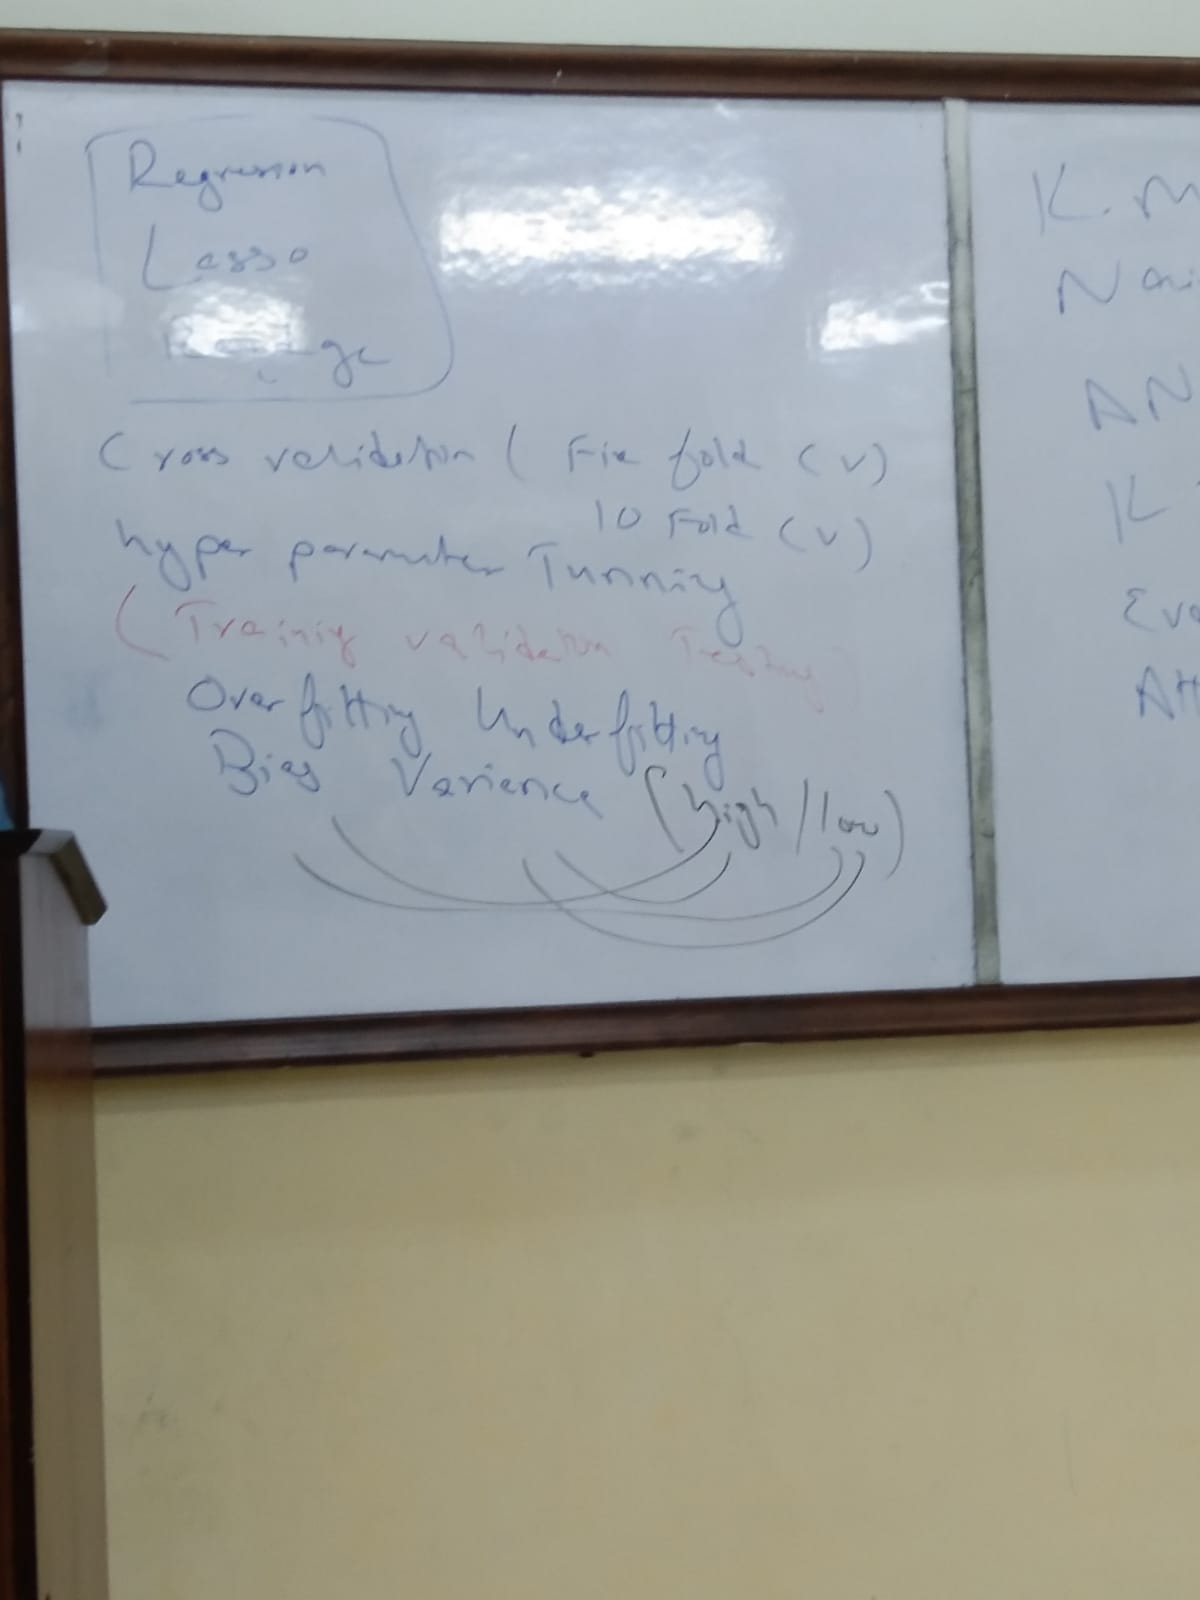 Regression
Lasso
Cross validation ( Five fold CV)
10 Fold CV)
hyper parameter Tunning
(Training validation Testing)
Overfitting Underfitting
Bias Varience (high/low)
K
AN
K